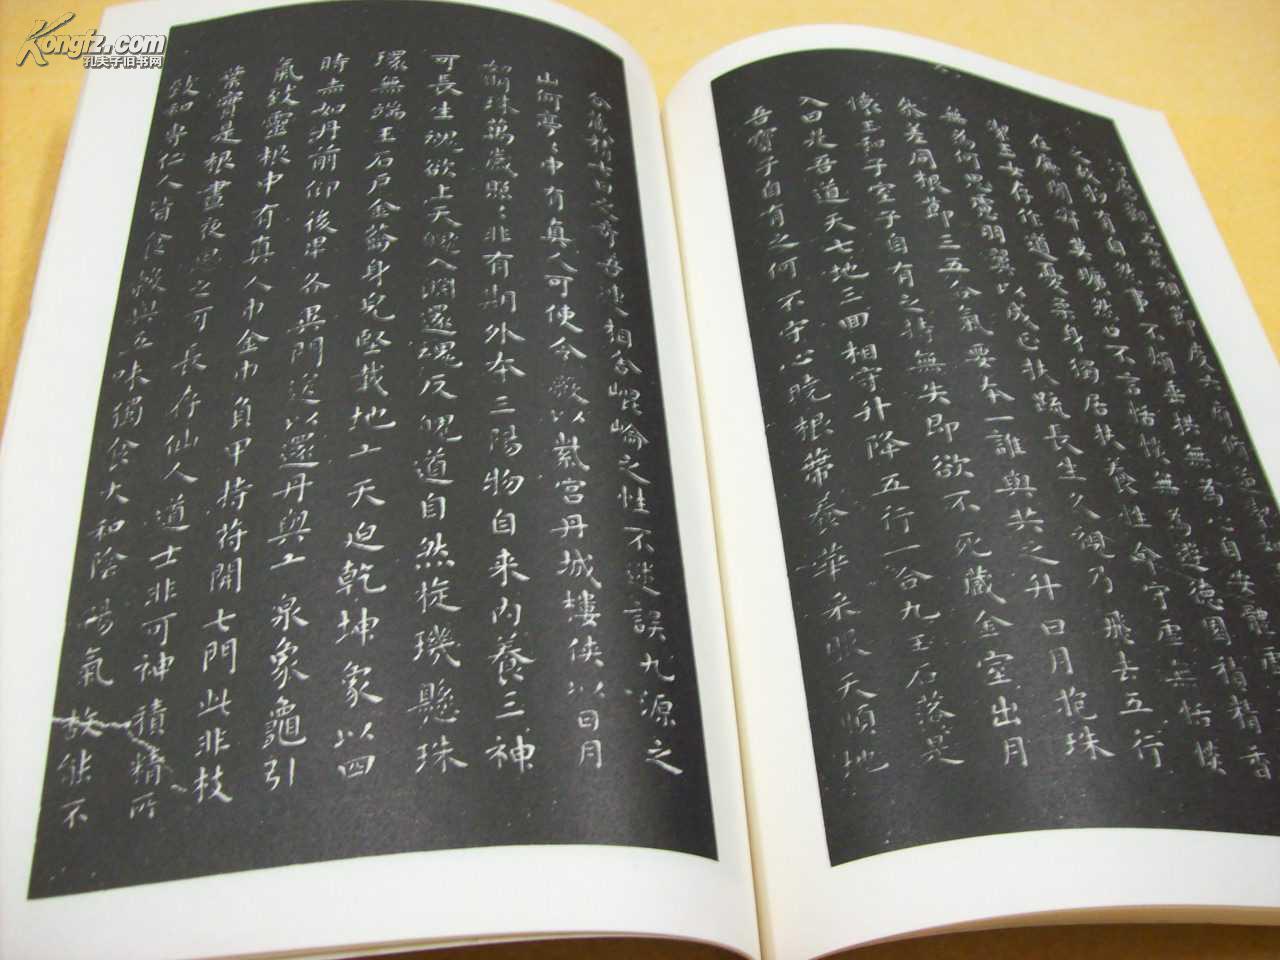 之故物有自然事不煩垂拱無為心自安體虛
在廉閒寂莫曠然口不言恬惔無為遊德園積精香
潔玉女存作道憂柔身獨居扶養性命守虛無恬惔
無為何思慮羽翼以成正扶疏長生久視乃飛去五行
參差同根節三五合氣要本一誰與共之升日月抱珠
懷玉和子室子自有之持無失即欲不死藏金室出月
入日是吾道天七地三回相守升降五行一合九玉石落是
吾寶子自有之何不守心曉根蒂養華采服天順地
合藏精七日之奇吾連相合崐崘之性不迷誤九源之
山何亭〻中有真人可使令蔽以紫宮丹城樓俠以日月
如明珠萬歲照〻非有期外本三陽物自来內養三神
可長生魂欲上天魄入淵還魂反魄道自然旋璣懸珠
環無端玉石戶金籥身完堅載地玄天迫乾坤象以四
時赤如丹前仰後卑各異門送以還丹與玄泉象龜引
氣致靈根中有真人巾金巾負甲持符開七門此非枝
葉實是根晝夜思之可長存仙人道士非可神積精所
致和專仁人皆食穀與五味獨食太和陰陽氣故能不
Kongfz.com
孔夫子旧书网